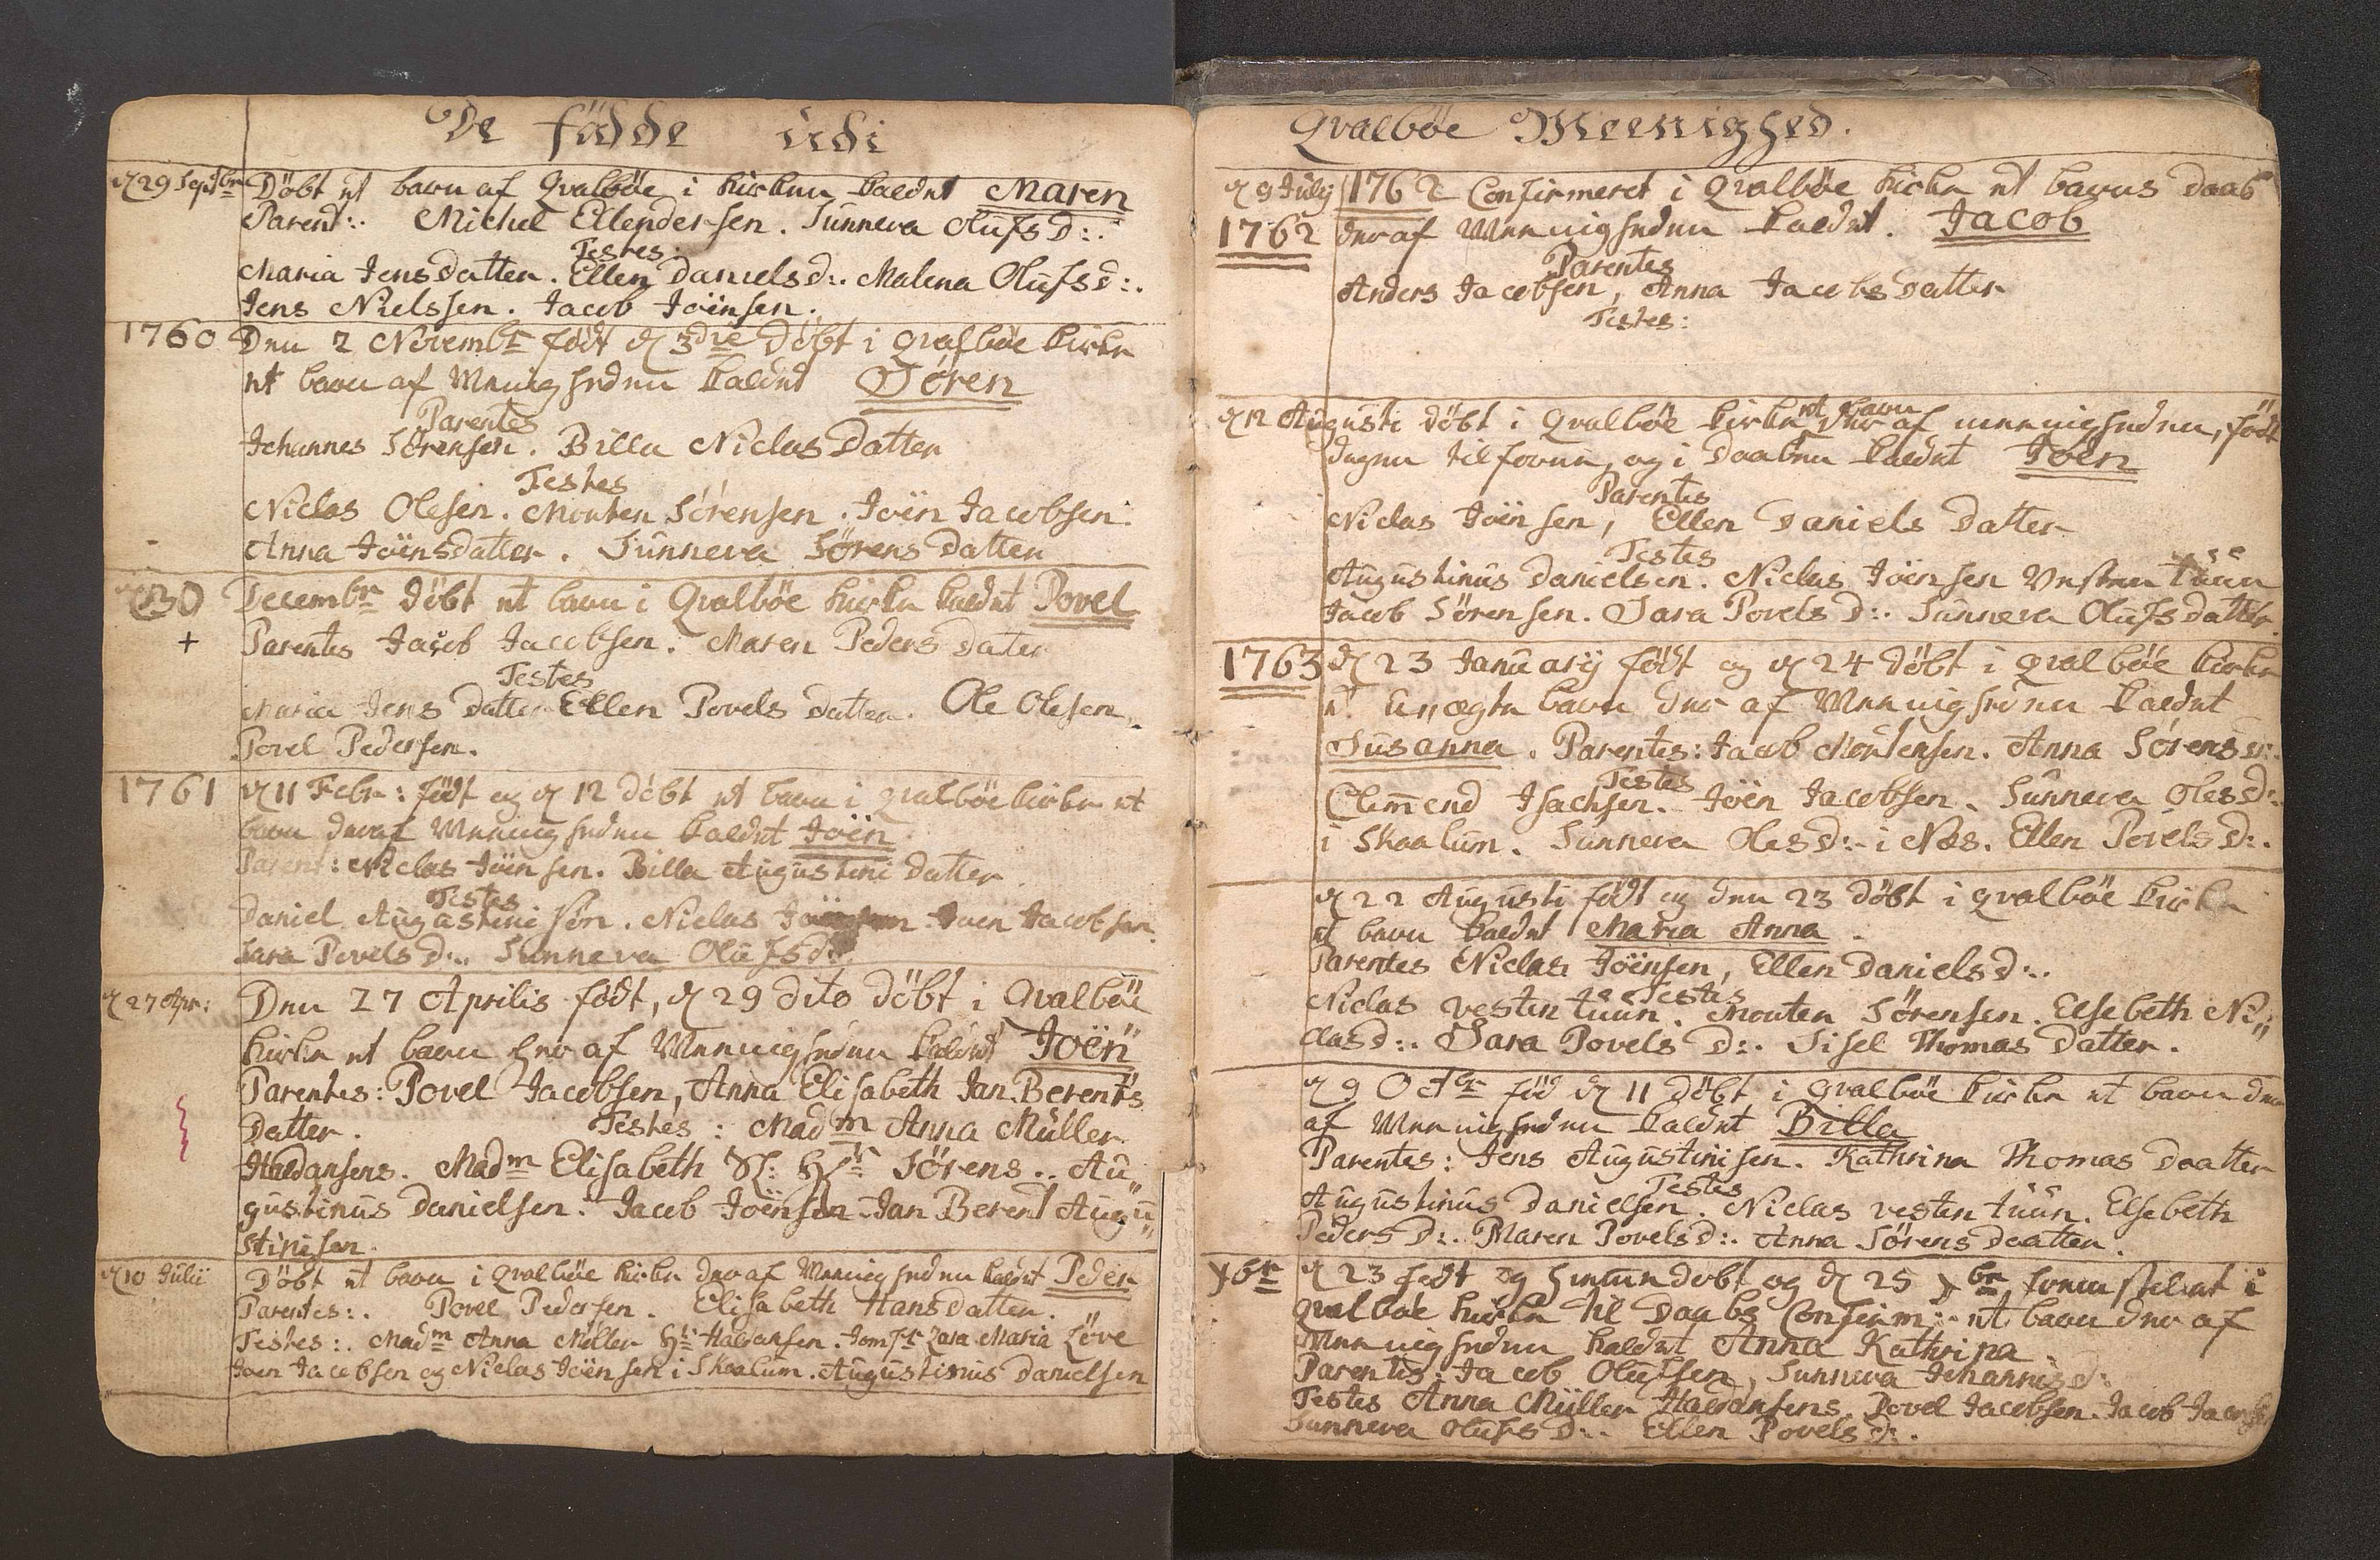 De födde udi
d 29 Septbr Döbt et barn af Qvalböe i kirken kaldet Maren
Parent:. Michel Ellendersen. Sunneva Olufs D:.
Testes:
Maria Jens datter. Ellen Daniels d:. Malena Olufs d:.
Jens Nielssen. Jacob Joensen.
1760 Den 2 Novembr födt d 3die Döbt i Qvalböe kirke
et barn af Menigheden kaldet Sören
Parentes
Johannes Sörensen. Billa Niclas Datter
Testes
Niclas Olesen. Morten Sörensen. Joën Jacobsen.
Anna Joënsdatter. Sunneva Sörens Datter
d 30 Decembr Döbt et barn i Qvalböe kirke kaldet Povel
+ Parentes Jacob Jacobsen. Maren Peders Dater
Testes
Maria Jens Datter Ellen Povels Datter. Ole Olesen.
Povel Pedersen.
1761 d 11 Febr: födt og d 12 döbt et barn i Qvalböe kirke et
barn deraf Menigheden kaldet Joën
Parent: Niclas Joensen. Billa Augustini Datter
Testes
Daniel Augustinisön. Niclas Joen Jacobsen
Sara Povels d:. Sunneva Olufs d:.
d 27 Apr: Den 27 Aprilis födt, d 29 dito döbt i Qvalböe
kirke et barn her af Menigheden kaldet Joën
Parentes: Povel Jacobsen, Anna Elisabeth Jan Berents
Datter. Testes: Madm Anna Müller
Haldansens. Madm Elisabeth Sl: Hr Sörens.. Au„
gustinus Danielsen. Jacob Joënsen Jan Berent Augu„
stinisen.
d 10 Julii Döbt et barn i Qvalböe kirke der af Menigheden kaldet Peder
Parentes:. Povel Pedersen. Elisabeth Hansdatter.
Testes:. Madm Anna Müller Hr Haldansen. Jomfr Zara Maria Löve
Joen Jacobsen og Niclas Joënsen i Skaalum. Augustinus Danielsen
Qvalböe Meenighed.
d 9 July 1762 Confirmeret i Qvalböe kirke et barns Daab
1762 der af Menigheden kaldet. Jacob
Parentes
Anders Jacobsen, Anna Jacobs Datter
Testes:
d 12 Augusti döbt i Qvalböe kirke et barn der af menigheden, födt
dagen tilforne, og i Daaben kaldet Joën
Parentes
Niclas Joënsen, Ellen Daniels Datter
Testes
Augustinus Danielsen. Niclas Joënsen Vesten tuun
Jacob Sörensen. Sara Povels D:. Sunneva Olufs datter.
1763 d 23 January födt og d 24 döbt i Qvalböe kirke
et u„ægte barn der af Menigheden kaldet
Susanna. Parentes: Jacob Mortensen. Anna Sörens D:.
Testes
Clemend Isachsen. Joën Jacobsen. Sunneva Oles D:.
i Skaalum. Sunneva Oles D:. i Nes. Ellen Povels D:.
d 22 Augusti födt og den 23 döbt i Qvalböe kirke
et barn kaldet Maria Anna.
Parentes Niclas Joënsen, Ellen Daniels d:.
Testes
Niclas vesten tuun. Morten Sörensen. Elsebeth Ni„
clas d:. Sara Povels D:. Sisel Thomas Datter.
d 9 Octbr föd d 11 döbt i Qvalböe kirke et barn der
af Menigheden kaldet Billa
Parentes: Jens Augustinisen. Kathrina Thomas Daatter
Testes
Augustinus Danielsen. Niclas vesten tuun. Elsebeth
Peders D:. Maren Povels d:. Anna Sörens Daatter.
d 23 födt og hiemmedöbt og d 25 fremstelet i
Qvalböe kirke til Daabs Confirm:. et barn der af
Menigheden kaldet Anna Kathrina.
Parentes: Jacob Olufsen, Sunneva Johannis d:
Testes Anna Müller Haldansens. Povel Jacobsen. Jacob
Sunneva Olufs D:. Ellen Povels d:.